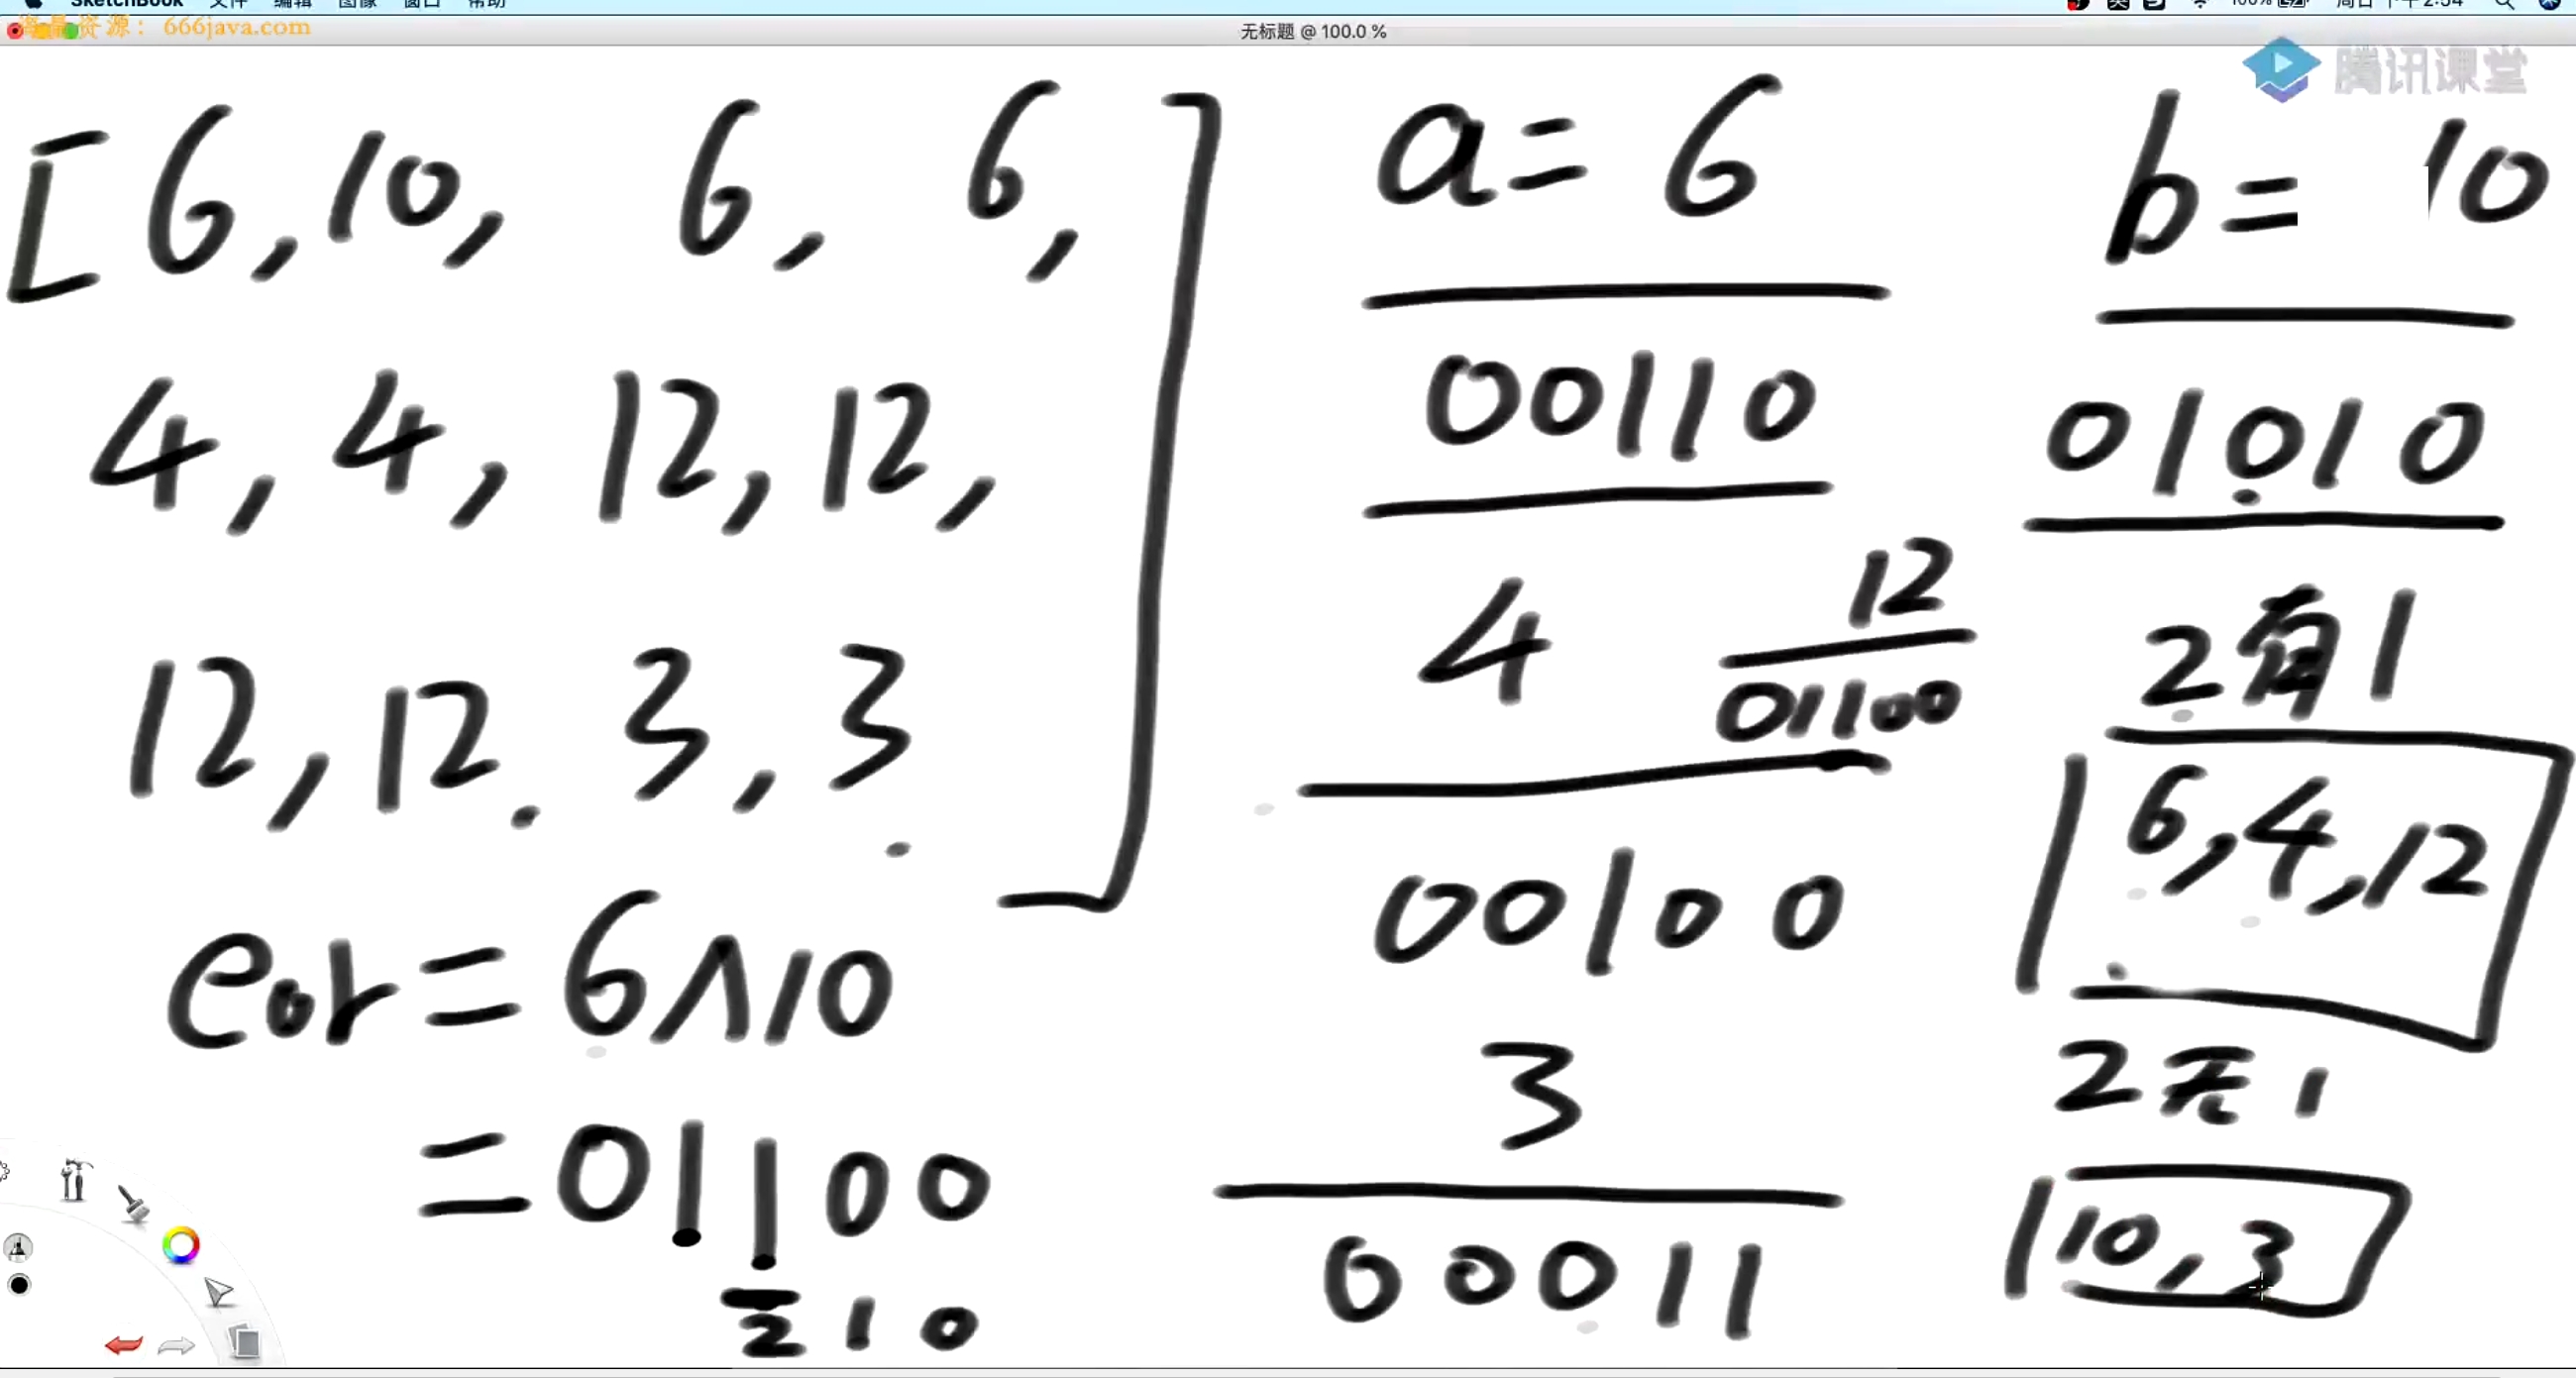 SketchBook 文件 编辑 图像 窗口 帮助 100% 周日 下午2:54
资源：666java.com
无标题 @ 100.0 %
腾讯课堂
[6,10, 6, 6,
4, 4, 12, 12,
12, 12. 3, 3 ]
eor = 6∧10
= 01100
2 1 0
a= 6
00110
4
12
01100
00100
3
00011
b= 10
01010
2有1
6,4,12
2无1
10,3